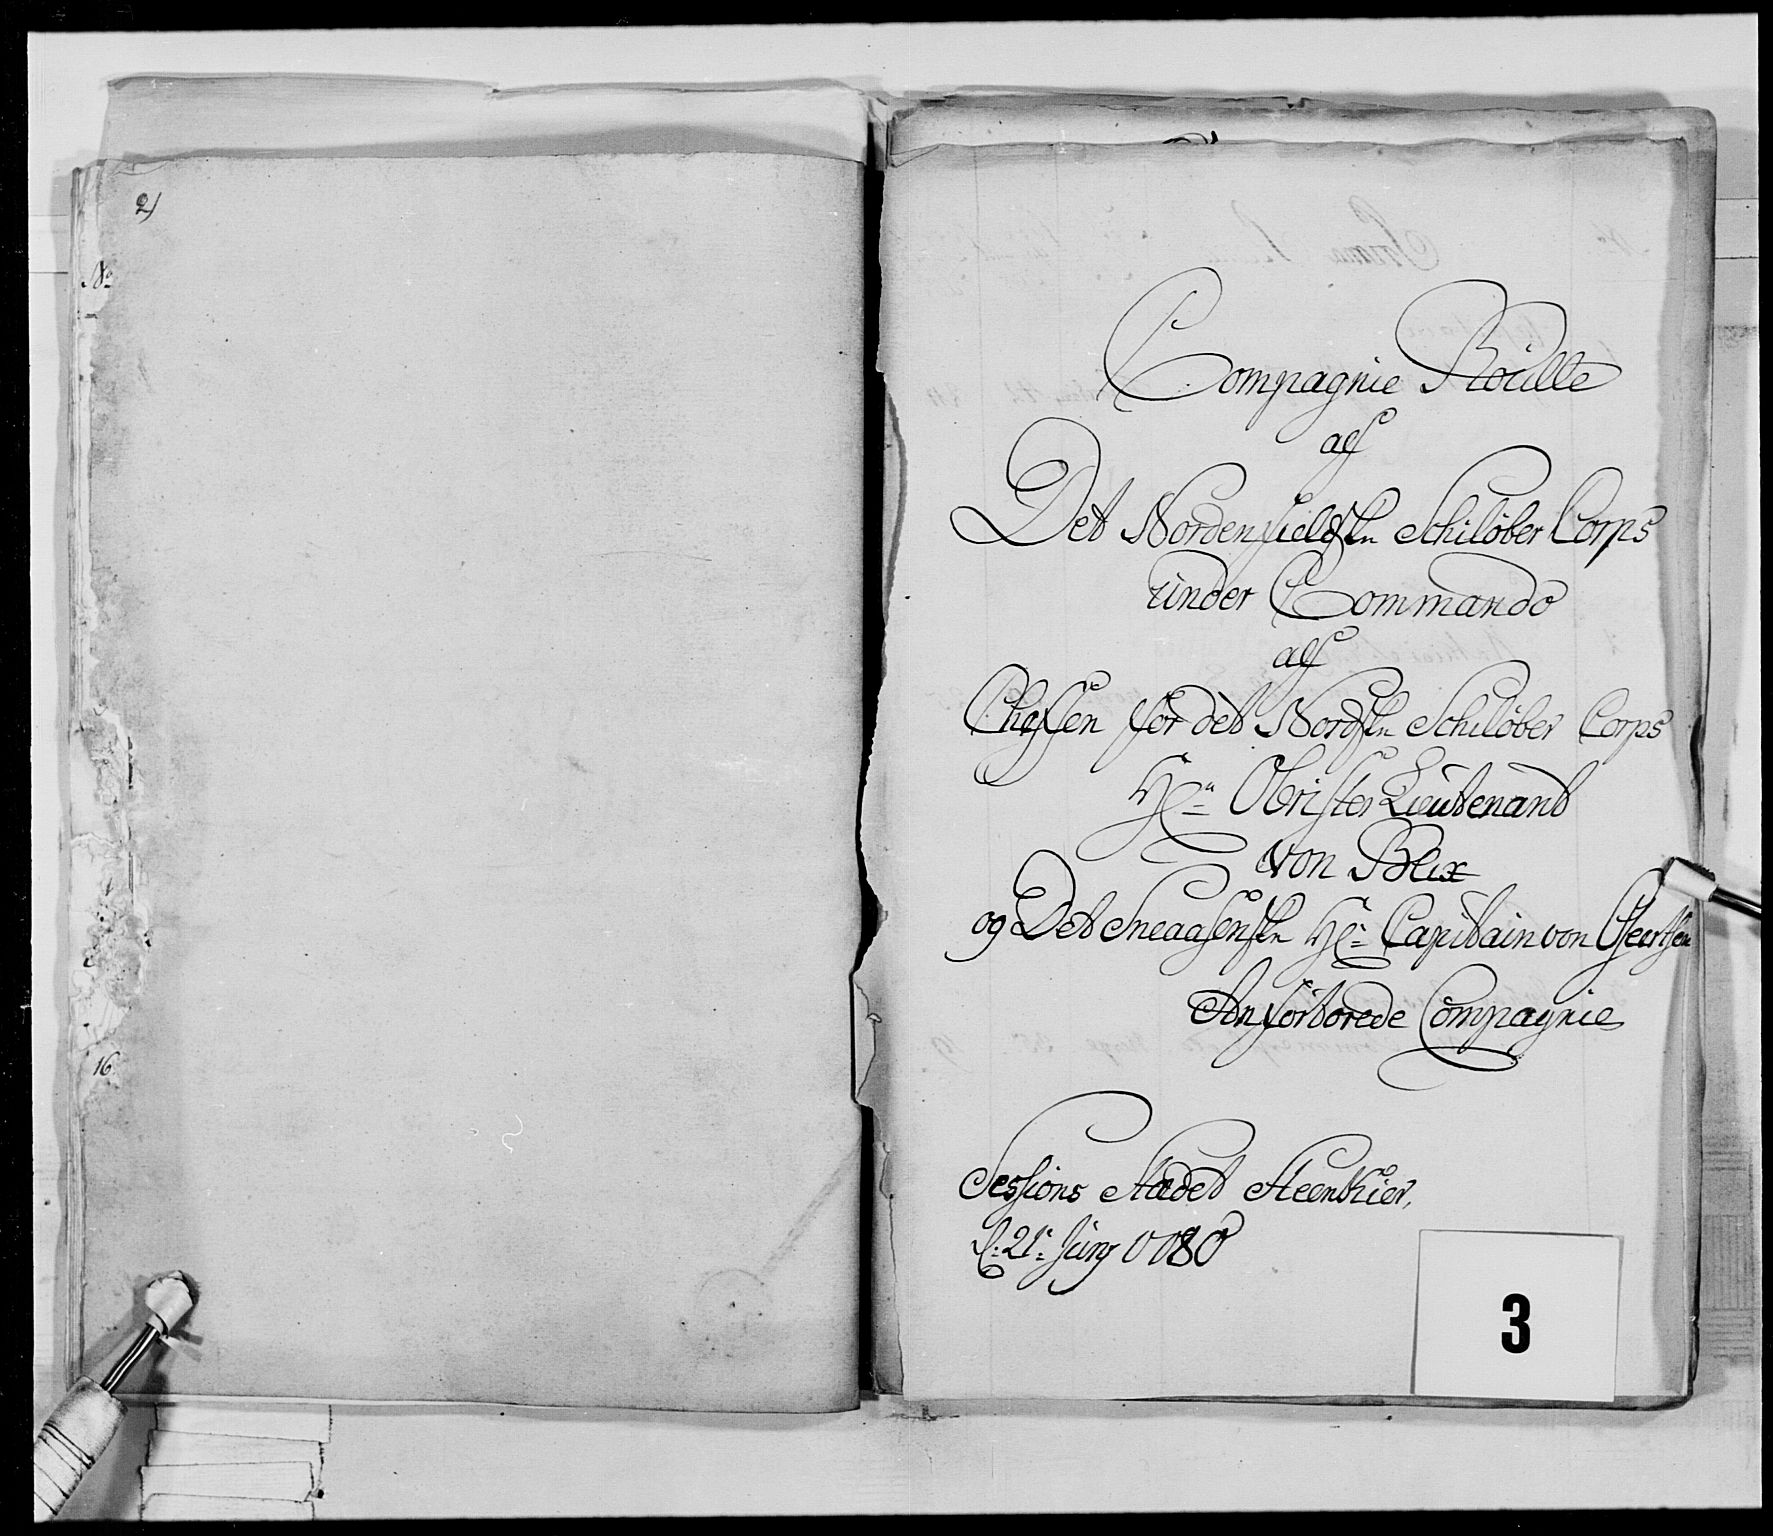 2)
No
16
Compagnie Roulle
aff
Det Nordenfieldskn Schilöber Corps
under Commando
aff
Cheffen for det Nordskn Schilöber Corps
Hrn Obrister Lieutenant
von Blix
og Det Sneaasenskn Hr: Capitain von Geertsen
Anfortroede Compagnie
Sessions Stædet Steenkier,
d: 21: Junj 1780
3